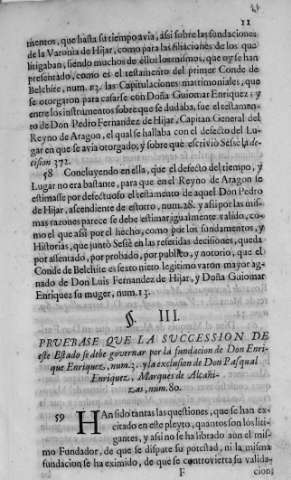 11
mentos, que hasta su tiempo avia, assi sobre las fundaciones
de la Varonia de Hijar, como para las filiaciones de los que
litigaban, siendo muchos de ellos los mismos, que oy se han
presentado, como es el testamento del primer Conde de
Belchite, num. 83. las Capitulaciones matrimoniales, que
se otorgaron para casarse con Doña Guiomar Enriquez: y
entre los instrumentos sobre que se dudaba, fue el testamen-
to de Don Pedro Fernandez de Hijar, Capitan General del
Reyno de Aragon, el qual se hallaba con el defecto del Lu-
gar en que se avia otorgado, y sobre que escrivió Sesse la de-
cision 372.
58 Concluyendo en ella, que el defecto del tiempo, y
Lugar no era bastante, para que en el Reyno de Aragon se
estimasse por defectuoso el testamento de aquel Don Pedro
de Hijar, ascendiente de el otro, num. 28. y assi por las mis-
mas razones parece se debe estimar igualmente valido, co-
mo el que assi por el hecho, como por los fundamentos, y
Historias, que juntò Sessè en las referidas decisiones, queda
por assentado, por probado, por publico, y notorio, que el
Conde de Belchite es sexto nieto legitimo varon mayor ag-
nado de Don Luis Fernandez de Hijar, y Doña Guiomar
Enriquez su muger, num. 13.
§. III.
PRUEBASE QUE LA SUCCESSION DE
este Estado se debe governar por la fundacion de Don Enri-
que Enriquez, num. 3. y la exclusion de Don Pasqual
Enriquez, Marquès de Alcañi-
zas, num. 80.
59 HAn sido tantas las questiones, que se han ex-
citado en este pleyto, quantos son los liti-
gantes, y assi no se ha librado aun el mis-
mo Fundador, de que se dispute su potestad, ni la misma
fundacion se ha eximido, de que se controvierta su valida-
F
cion;